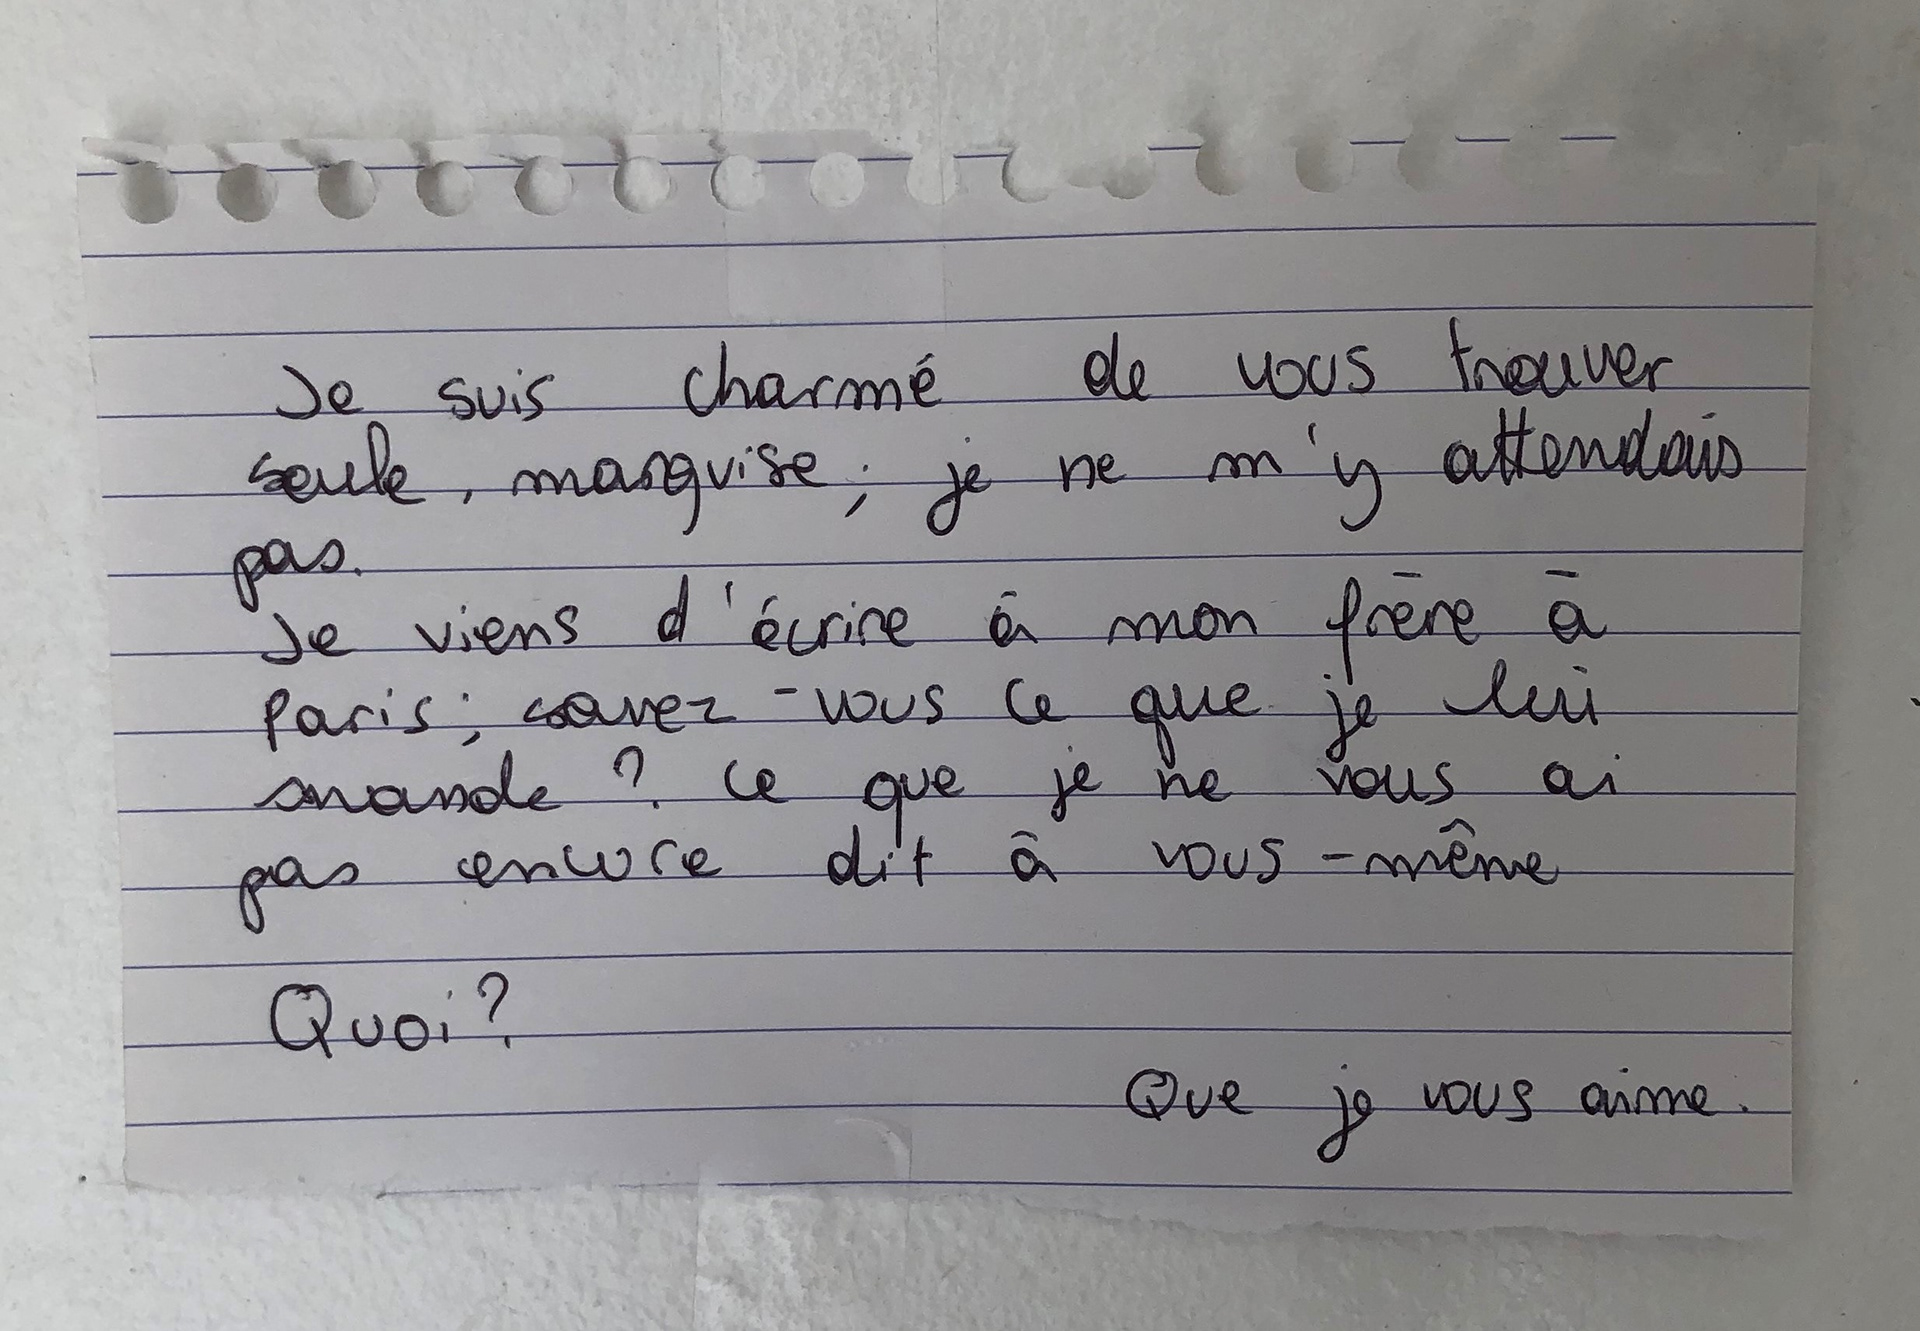 Je suis charmé de vous trouver
seule, marquise ; je ne m'y attendais
pas.
Je viens d'écrire à mon frère à
Paris ; savez-vous ce que je lui
mande ? Ce que je ne vous ai
pas encore dit à vous-même
Quoi ?
Que je vous aime.